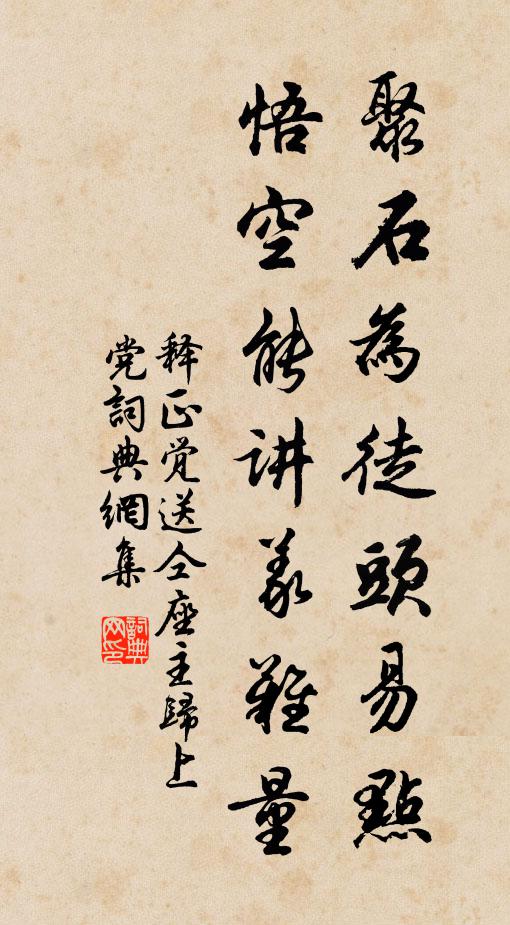 聚石為徒頭易點
悟空能讲義難量
释正觉送仝座主歸上
党詞典網集
詞典网印